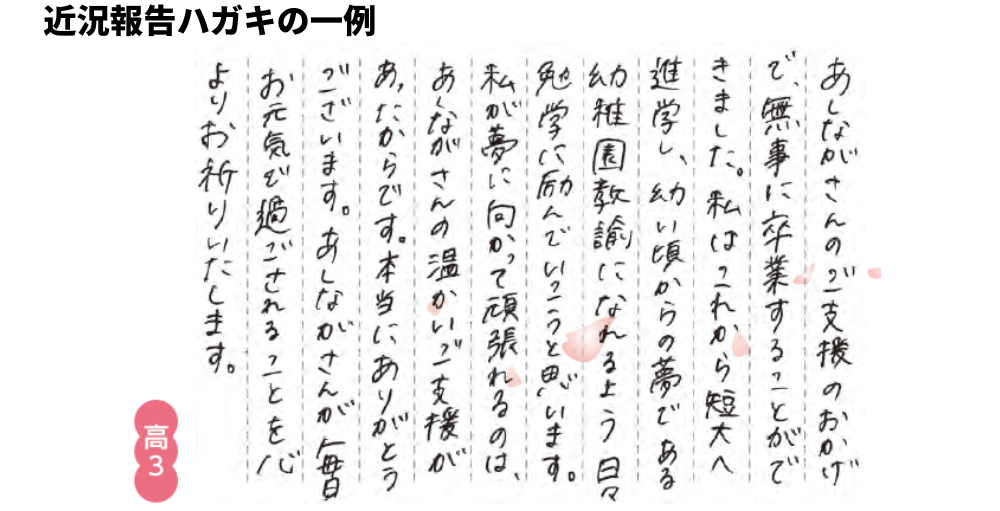 近況報告ハガキの一例
あしながさんのご支援のおかげ
で、無事に卒業することがで
きました。私はこれから短大へ
進学し、幼い頃からの夢である
幼稚園教諭になれるよう日々
勉学に励んでいこうと思います。
私が夢に向かって頑張れるのは、
あしながさんの温かいご支援が
あったからです。本当にありがとう
ございます。あしながさんが毎日
お元気で過ごされることを心
よりお祈りいたします。
高
3